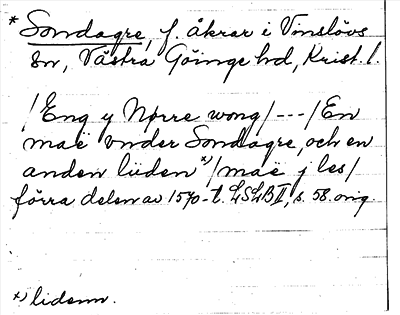 * Sondagre, f. åkrar i Vinslövs
sn, Västra Göinge hd, Krist. l.
/Eng y Nørre wong/---/En
maë vnder Sondagre, och en
anden lüden*)/maë j les/
förra delen av 1570-t. LSLB II, s. 58. orig.
*) lidenn.